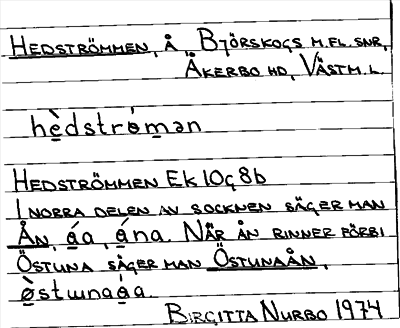 HEDSTRÖMMEN, Å BJÖRSKOGS M.FL. SNR,
ÅKERBO HD, VÄSTM.L.
hèdstrómən
HEDSTRÖMMEN EK 10g 8b
I NORRA DELEN AV SOCKNEN SÄGER MAN
ÅN, áa, ána. NÄR ÅN RINNER FÖRBI
ÖSTUNA SÄGER MAN ÖSTUNAÅN,
òstɯnaáa.
BIRGITTA NURBO 1974